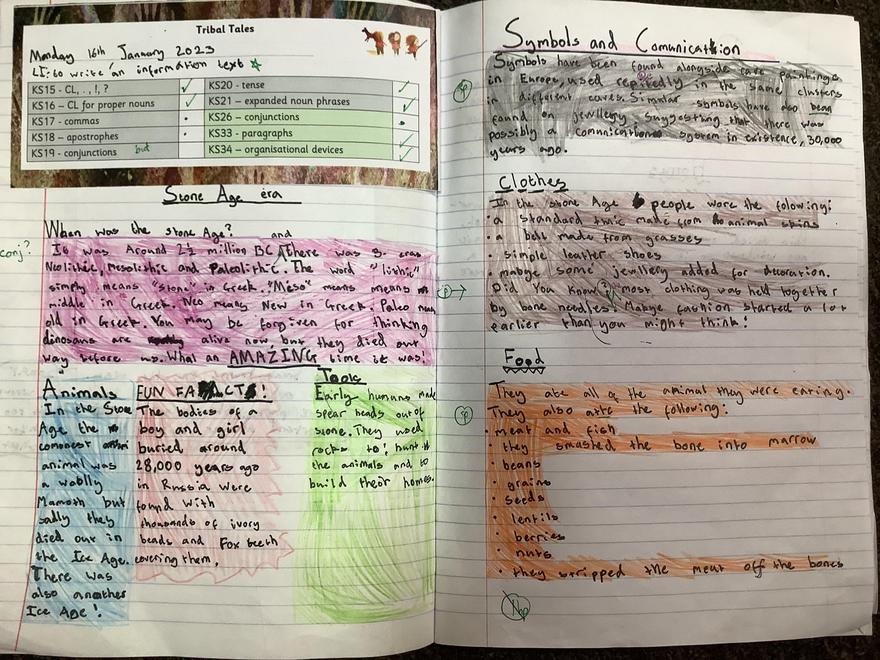 Tribal Tales
Monday 16th January 2023
LI: to write an information text
KS15 - CL, . , !, ?
KS16 – CL for proper nouns
KS17 - commas
KS18 – apostrophes
KS19 - conjunctions but
KS20 - tense
KS21 – expanded noun phrases
KS26 – conjunctions
KS33 - paragraphs
KS34 – organisational devices
Stone Age era
When was the stone Age?
and
conj?
It was Around 2½ million BC There was 3 eras
Neolithic, mesolithic and Paleolithic. The word "lithic"
simply means "stone" in Greek. "Meso" means means
middle in Greek. Neo means New in Greek. Paleo means
old in Greek. You may be forgiven for thinking
dinosaurs are alive now but they died out
way before us. What an AMAZING time it was!
Animals
In the Stone
Age the
comonest
animal was
a woolly
Mamoth but
sadly they
died out in
the Ice Age.
There was
also another
Ice Age!
FUN FACTS!
The bodies of a
boy and girl
buried around
28,000 years ago
in Russia were
found with
thousands of ivory
beads and Fox teeth
covering them.
Tools
Early humans made
spear heads out of
stone. They used
rocks to! hunt
the animals and to
build their homes.
Symbols and Comunication
Symbols have been found alongside cave paintings
in Europe, used repitedly in the same clusters
in different caves. Simular symbols have also been
found on jewllery suggesting that there was
possibly a comunication system in existence, 30,000
years ago.
Clothes
In the stone Age people wore the folowing:
• a standard tunic made from animal skins
• a belt made from grasses
• simple leather shoes
• mabye some jewllery added for decoration.
Did You know? most clothing was held together
by bone needles. Mabye fashion started a lot
earlier than you might think!
Food
They ate all of the animal they were eating.
They also ate the following:
• meat and fish
they smashed the bone into marrow
• beans
• grains
• seeds
• lentils
• berries
• nuts
• they stripped the meat off the bones